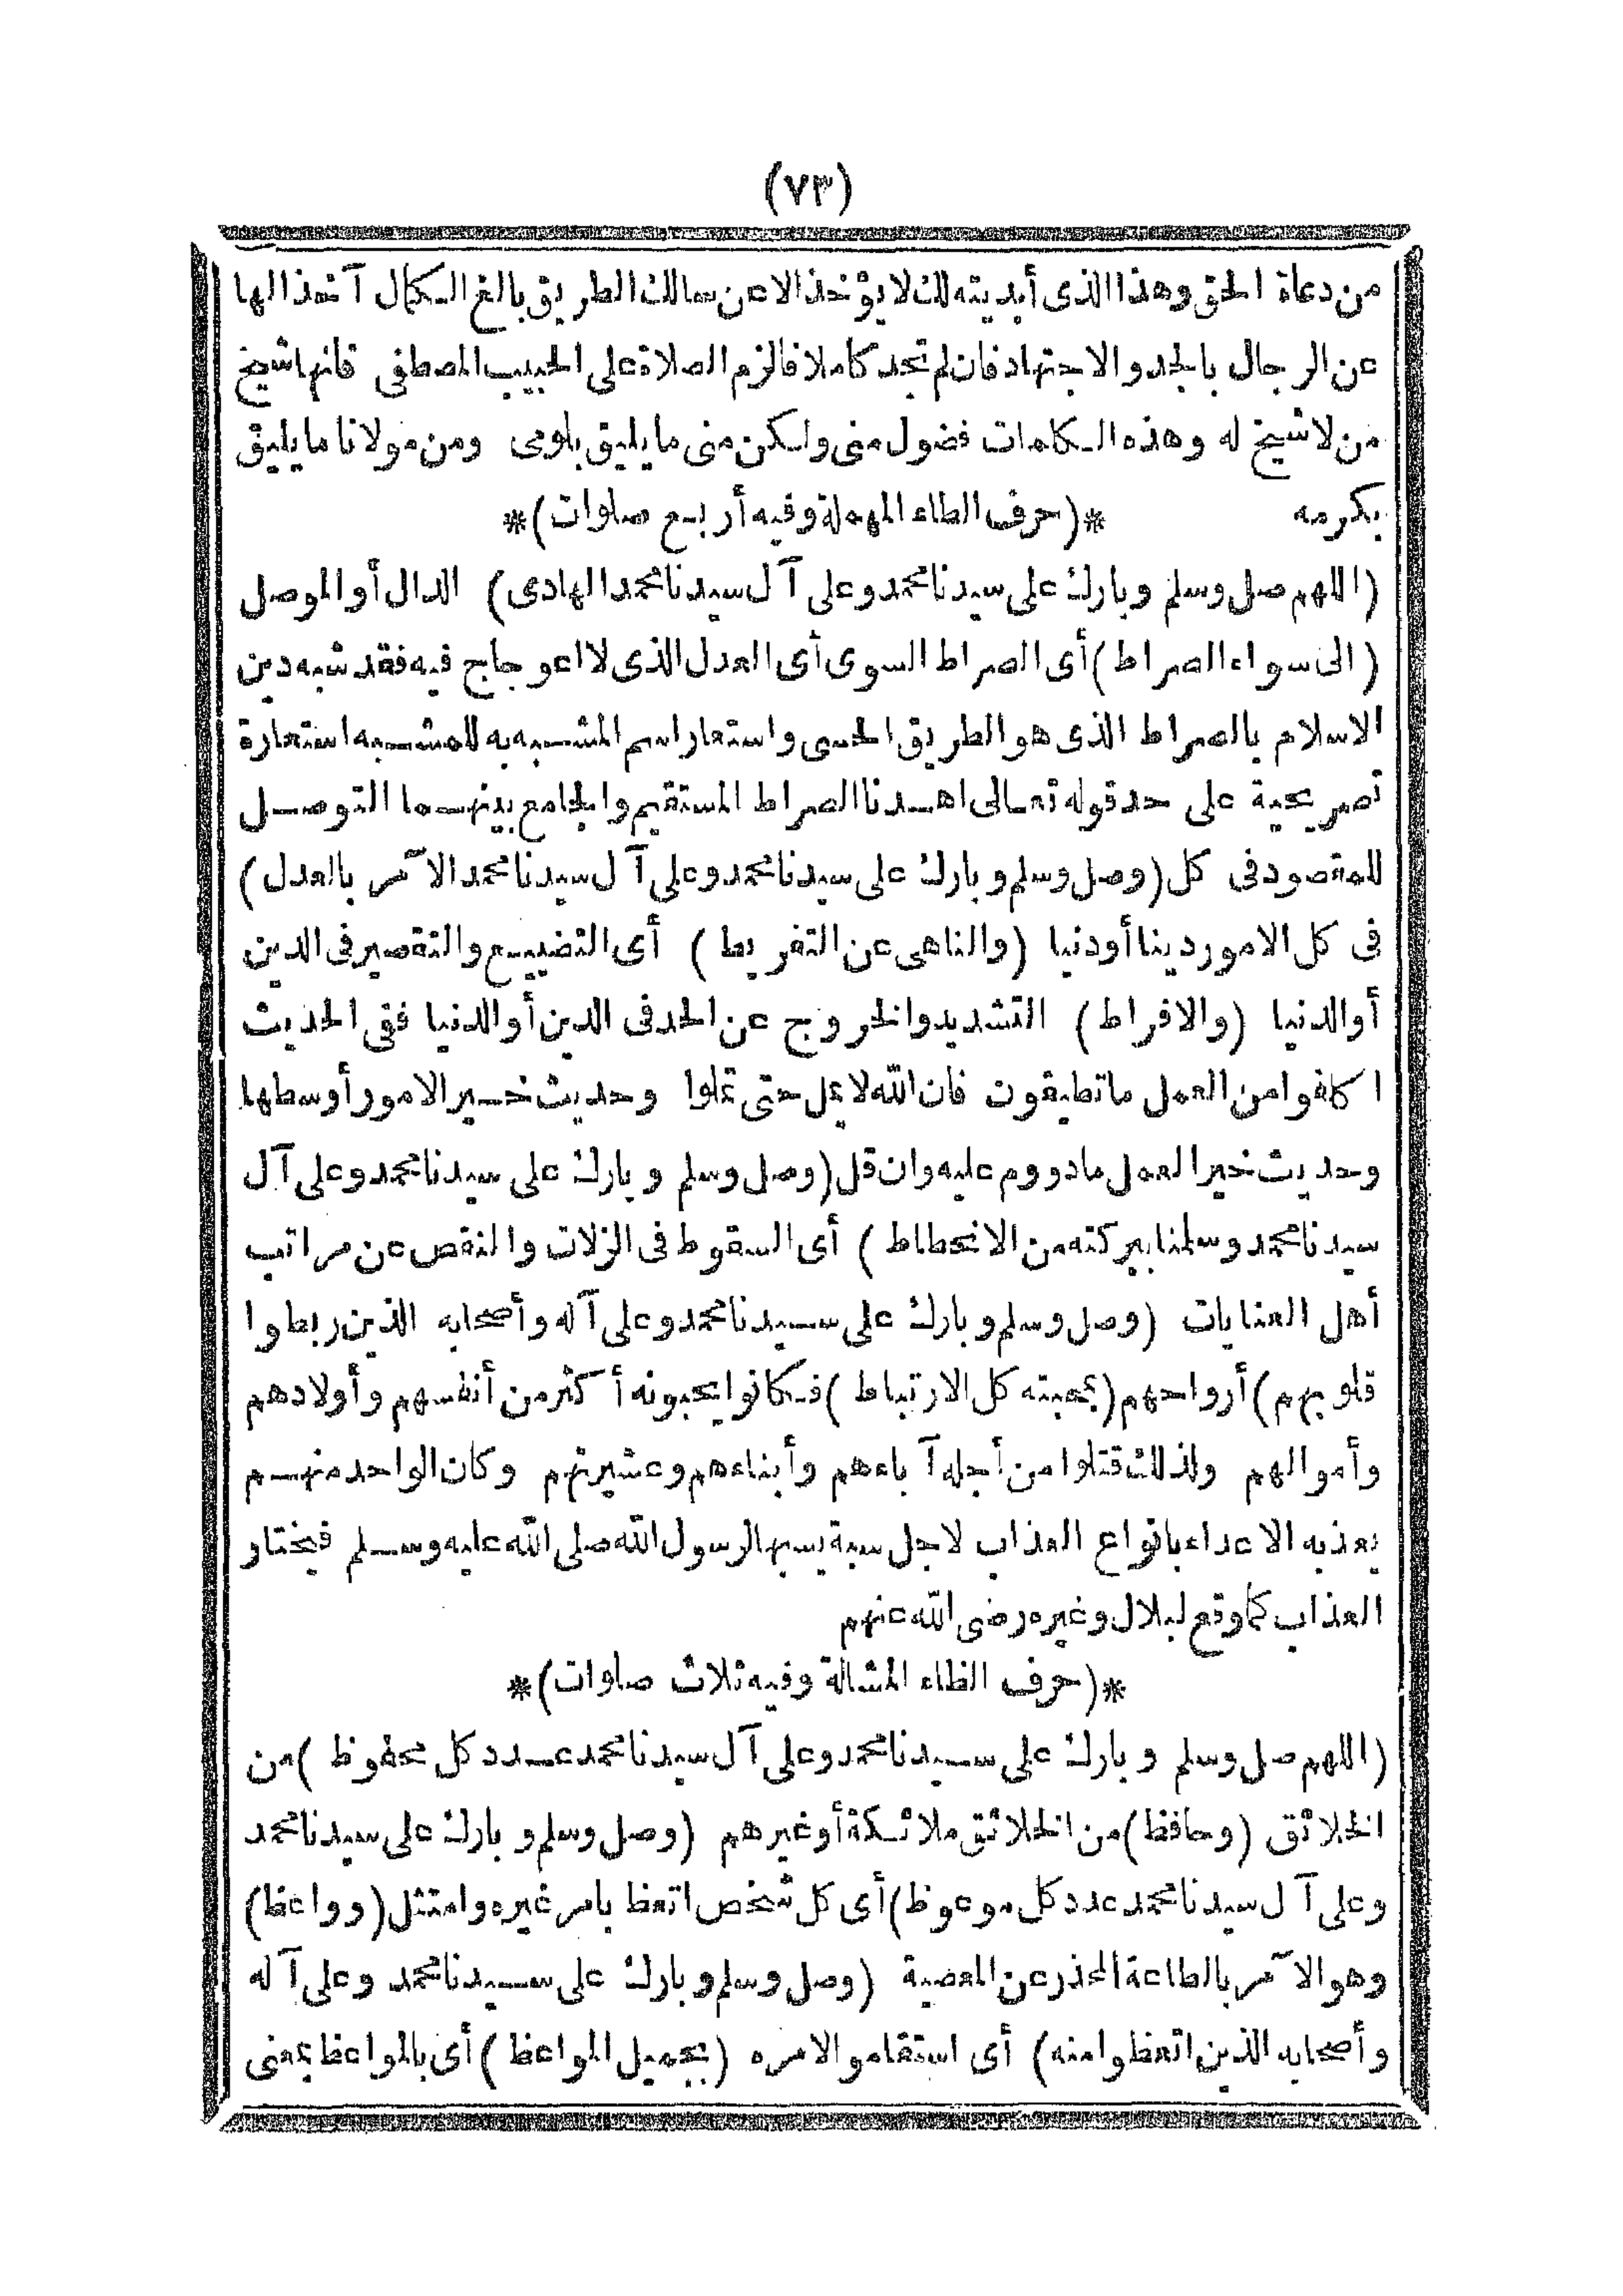 (٧٣)
من دعاة الحق وهذا الذى أبديته لك لا يؤخذ الا عن سالك الطريق بالغ الكمال آخذا لها
عن الرجال بالجد والاجتهاد فان لم تجد كاملا فالزم الصلاة على الحبيب المصطفى فانها شيخ
من لا شيخ له وهذه الكلمات فضول منى ولكن منى ما يليق بلومى ومن مولانا ما يليق
بكرمه *(حرف الطاء المهملة وفيه أربع صلوات)*
(اللهم صل وسلم وبارك على سيدنا محمد وعلى آل سيدنا محمد الهادى) الدال أو الموصل
(الى سواء الصراط) أى الصراط السوى أى العدل الذى لا اعوجاج فيه فقد شبه دين
الاسلام بالصراط الذى هو الطريق الحسى واستعار اسم المشبه به للمشبه استعارة
تصريحية على حد قوله تعالى اهدنا الصراط المستقيم والجامع بينهما التوصل
للمقصود فى كل (وصل وسلم وبارك على سيدنا محمد وعلى آل سيدنا محمد الآمر بالعدل)
فى كل الامور دينا أو دنيا (والناهى عن التفريط) أى التضييع والتقصير فى الدين
أو الدنيا (والافراط) التشديد والخروج عن الحد فى الدين أو الدنيا ففى الحديث
اكلفوا من العمل ما تطيقون فان الله لا يمل حتى تملوا وحديث خير الامور أوسطها
وحديث خير العمل ما دووم عليه وان قل (وصل وسلم وبارك على سيدنا محمد وعلى آل
سيدنا محمد وسلمنا ببركته من الانحطاط) أى السقوط فى الزلات والنقص عن مراتب
أهل العنايات (وصل وسلم وبارك على سيدنا محمد وعلى آله وأصحابه الذين ربطوا
قلوبهم) أرواحهم (بمحبته كل الارتباط) فكانوا يحبونه أكثر من أنفسهم وأولادهم
وأموالهم ولذلك قتلوا من أجله آباءهم وأبناءهم وعشيرتهم وكان الواحد منهم
يعذبه الاعداء بانواع العذاب لاجل سبة يسبها لرسول الله صلى الله عليه وسلم فيختار
العذاب كما وقع لبلال وغيره رضى الله عنهم
*(حرف الظاء المشالة وفيه ثلاث صلوات)*
(اللهم صل وسلم وبارك على سيدنا محمد وعلى آل سيدنا محمد عدد كل محفوظ) من
الخلائق (وحافظ) من الخلائق ملائكة أو غيرهم (وصل وسلم وبارك على سيدنا محمد
وعلى آل سيدنا محمد عدد كل موعوظ) أى كل شخص اتعظ بامر غيره وامتثل (وواعظ)
وهو الآمر بالطاعة المحذر عن المعصية (وصل وسلم وبارك على سيدنا محمد وعلى آله
وأصحابه الذين اتعظوا منه) أى استقاموا لامره (بجميل المواعظ) أى بالمواعظ بمعنى